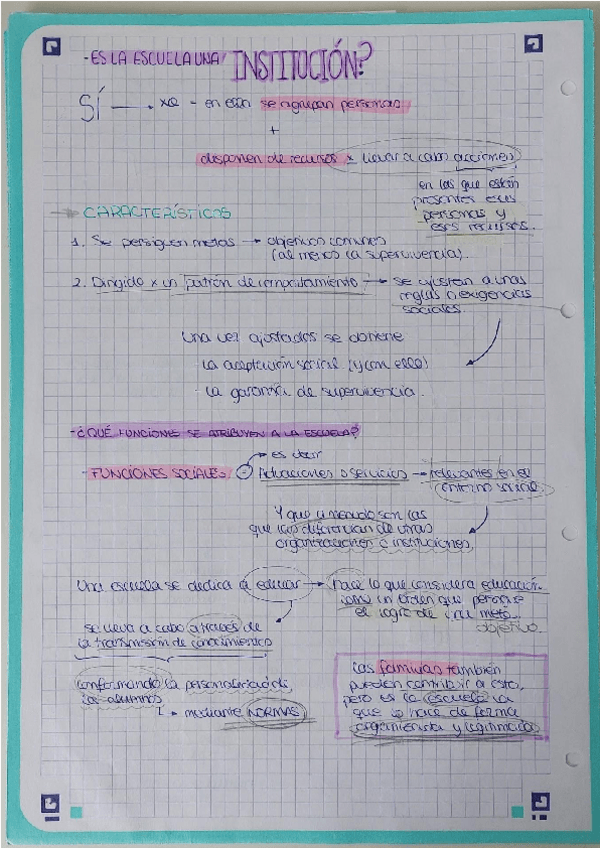 - ES LA ESCUELA UNA INSTITUCIÓN?
SÍ — . xq - en ella se agrupan personas
+
disponen de recursos x llevar a cabo acciones
en las que están
presentes esas
personas y
esos recursos.
→ CARACTERÍSTICAS
1. Se persiguen metas → objetivos comunes
(al menos la supervivencia).
2. Dirigido x un patrón de comportamiento → se ajustan a unas
reglas o exigencias
sociales.
Una vez ajustados se obtiene
la aceptación social (y con ella)
la garantía de supervivencia.
- ¿QUÉ FUNCIONES SE ATRIBUYEN A LA ESCUELA?
→ es decir
- FUNCIONES SOCIALES Actuaciones o servicios → relevantes en el
entorno social
Y que a menudo son las
que las diferencian de otras
organizaciones e instituciones
Una escuela se dedica a educar → hace lo que considera educación
como un orden que persigue
el logro de una meta.
objetivo.
se lleva a cabo a través de
la transmisión de conocimientos
conformando la personalidad de
los alumnos
→ mediante NORMAS
Las familias también
pueden contribuir a esto,
pero es la escuela la
que lo hace de forma
organizada y legitimada